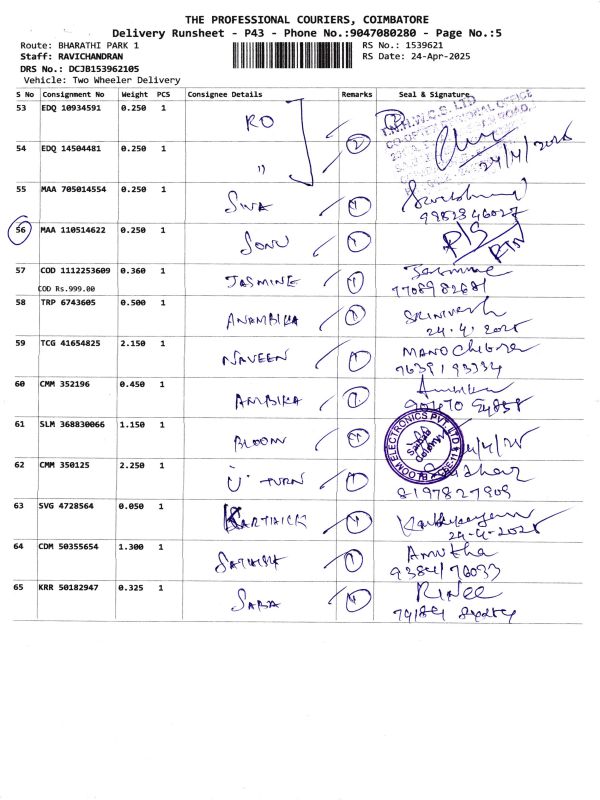 THE PROFESSIONAL COURIERS, COIMBATORE
Delivery Runsheet - P43 - Phone No.:9047080280 - Page No.:5
Route: BHARATHI PARK 1 RS No.: 1539621
Staff: RAVICHANDRAN RS Date: 24-Apr-2025
DRS No.: DCJB153962105
Vehicle: Two Wheeler Delivery
S No Consignment No Weight PCS Consignee Details Remarks Seal & Signature
53 EDQ 10934591 0.250 1 RO 2
54 EDQ 14504481 0.250 1 " 24/4/2025
55 MAA 705014554 0.250 1 SWA 1
56 MAA 110514622 0.250 1 SONU 1 P/S RTN
57 COD 1112253609 0.360 1 JASMINE 1 Jasmine
COD Rs.999.00
58 TRP 6743605 0.500 1 ANAMBIKA 1 SRINIVESH
24.4.2025
59 TCG 41654825 2.150 1 NAVEEN 1
60 CMM 352196 0.450 1 AMBIKA 1 Ambika
61 SLM 368830066 1.150 1 BLOOM 1 BLOOM ELECTRONICS PVT LTD CBE-11
62 CMM 350125 2.250 1 U TURN 1
8197827909
63 SVG 4728564 0.050 1 KARTHICK 1
24-4-2025
64 CDM 50355654 1.300 1 SATHISH 1 Amutha
65 KRR 50182947 0.325 1 SABA 1